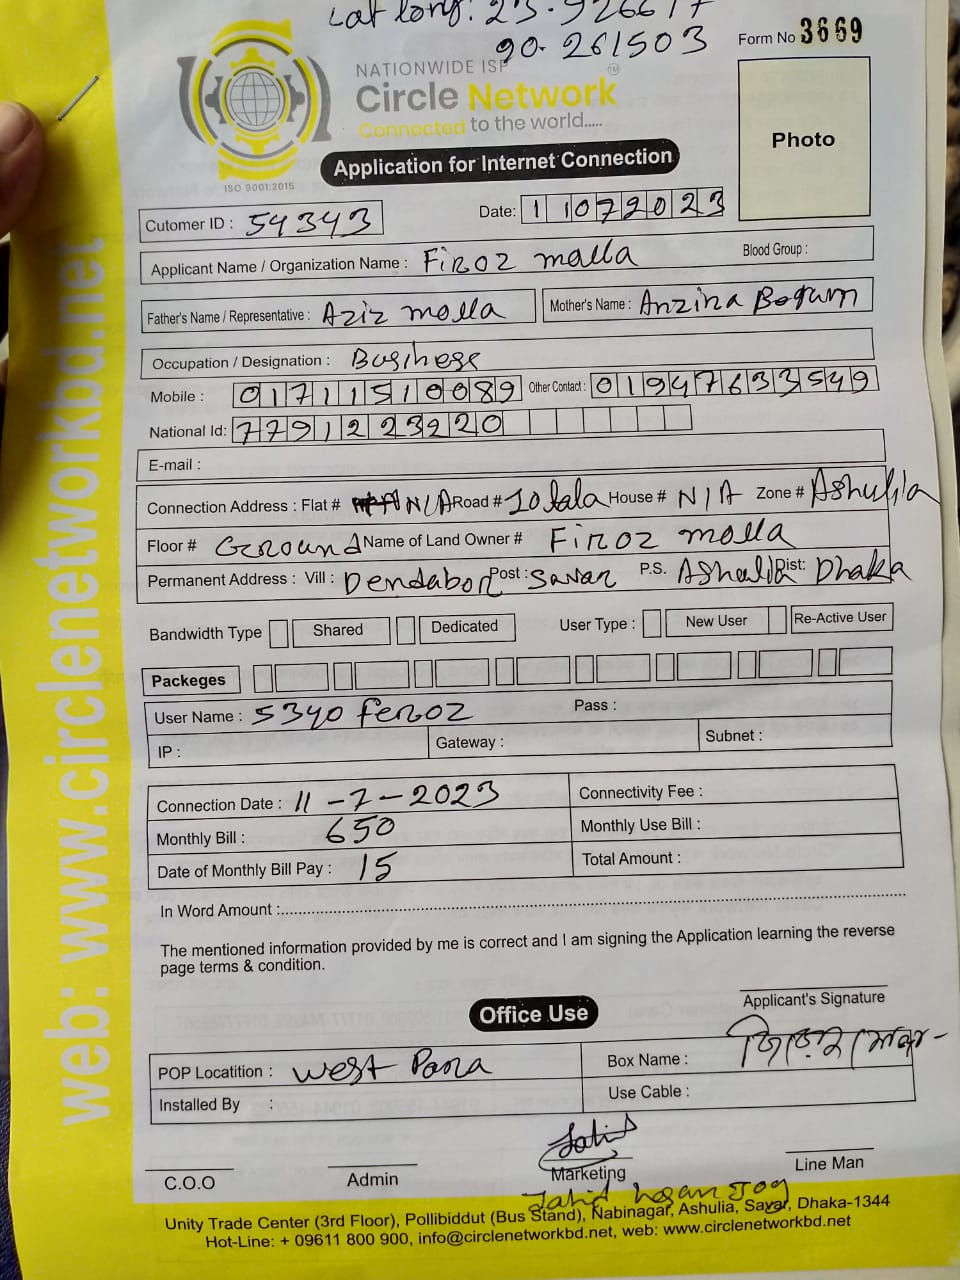 Lat long: 23.926617
90.261503
Form No 3669
NATIONWIDE ISP
Circle Network TM
Connected to the world.....
ISO 9001:2015
Application for Internet Connection
Photo
Cutomer ID : 54343
Date: 11072023
Applicant Name / Organization Name : Firoz molla Blood Group :
Father's Name / Representative : Aziz molla Mother's Name : Anzina Begum
Occupation / Designation : Business
Mobile : 01711510089 Other Contact : 01947633549
National Id: 7791223220
E-mail :
Connection Address : Flat # N/A Road # 10tala House # N/A Zone # Ashulia
Floor # Ground Name of Land Owner # Firoz molla
Permanent Address : Vill : Dendabor Post : Savar P.S. Ashulia Dist: Dhaka
Bandwidth Type Shared Dedicated User Type : New User Re-Active User
Packeges
User Name : 5340 feroz Pass :
IP : Gateway : Subnet :
Connection Date : 11-7-2023 Connectivity Fee :
Monthly Bill : 650 Monthly Use Bill :
Date of Monthly Bill Pay : 15 Total Amount :
In Word Amount :
The mentioned information provided by me is correct and I am signing the Application learning the reverse
page terms & condition.
Applicant's Signature
Office Use
ফিরোজ মোল্লা
POP Locatition : West Para Box Name :
Installed By : Use Cable :
Jahid
C.O.O Admin Marketing Line Man
Jahid hasan Joy
Unity Trade Center (3rd Floor), Pollibiddut (Bus Stand), Nabinagar, Ashulia, Savar, Dhaka-1344
Hot-Line: + 09611 800 900, info@circlenetworkbd.net, web: www.circlenetworkbd.net
web: www.circlenetworkbd.net